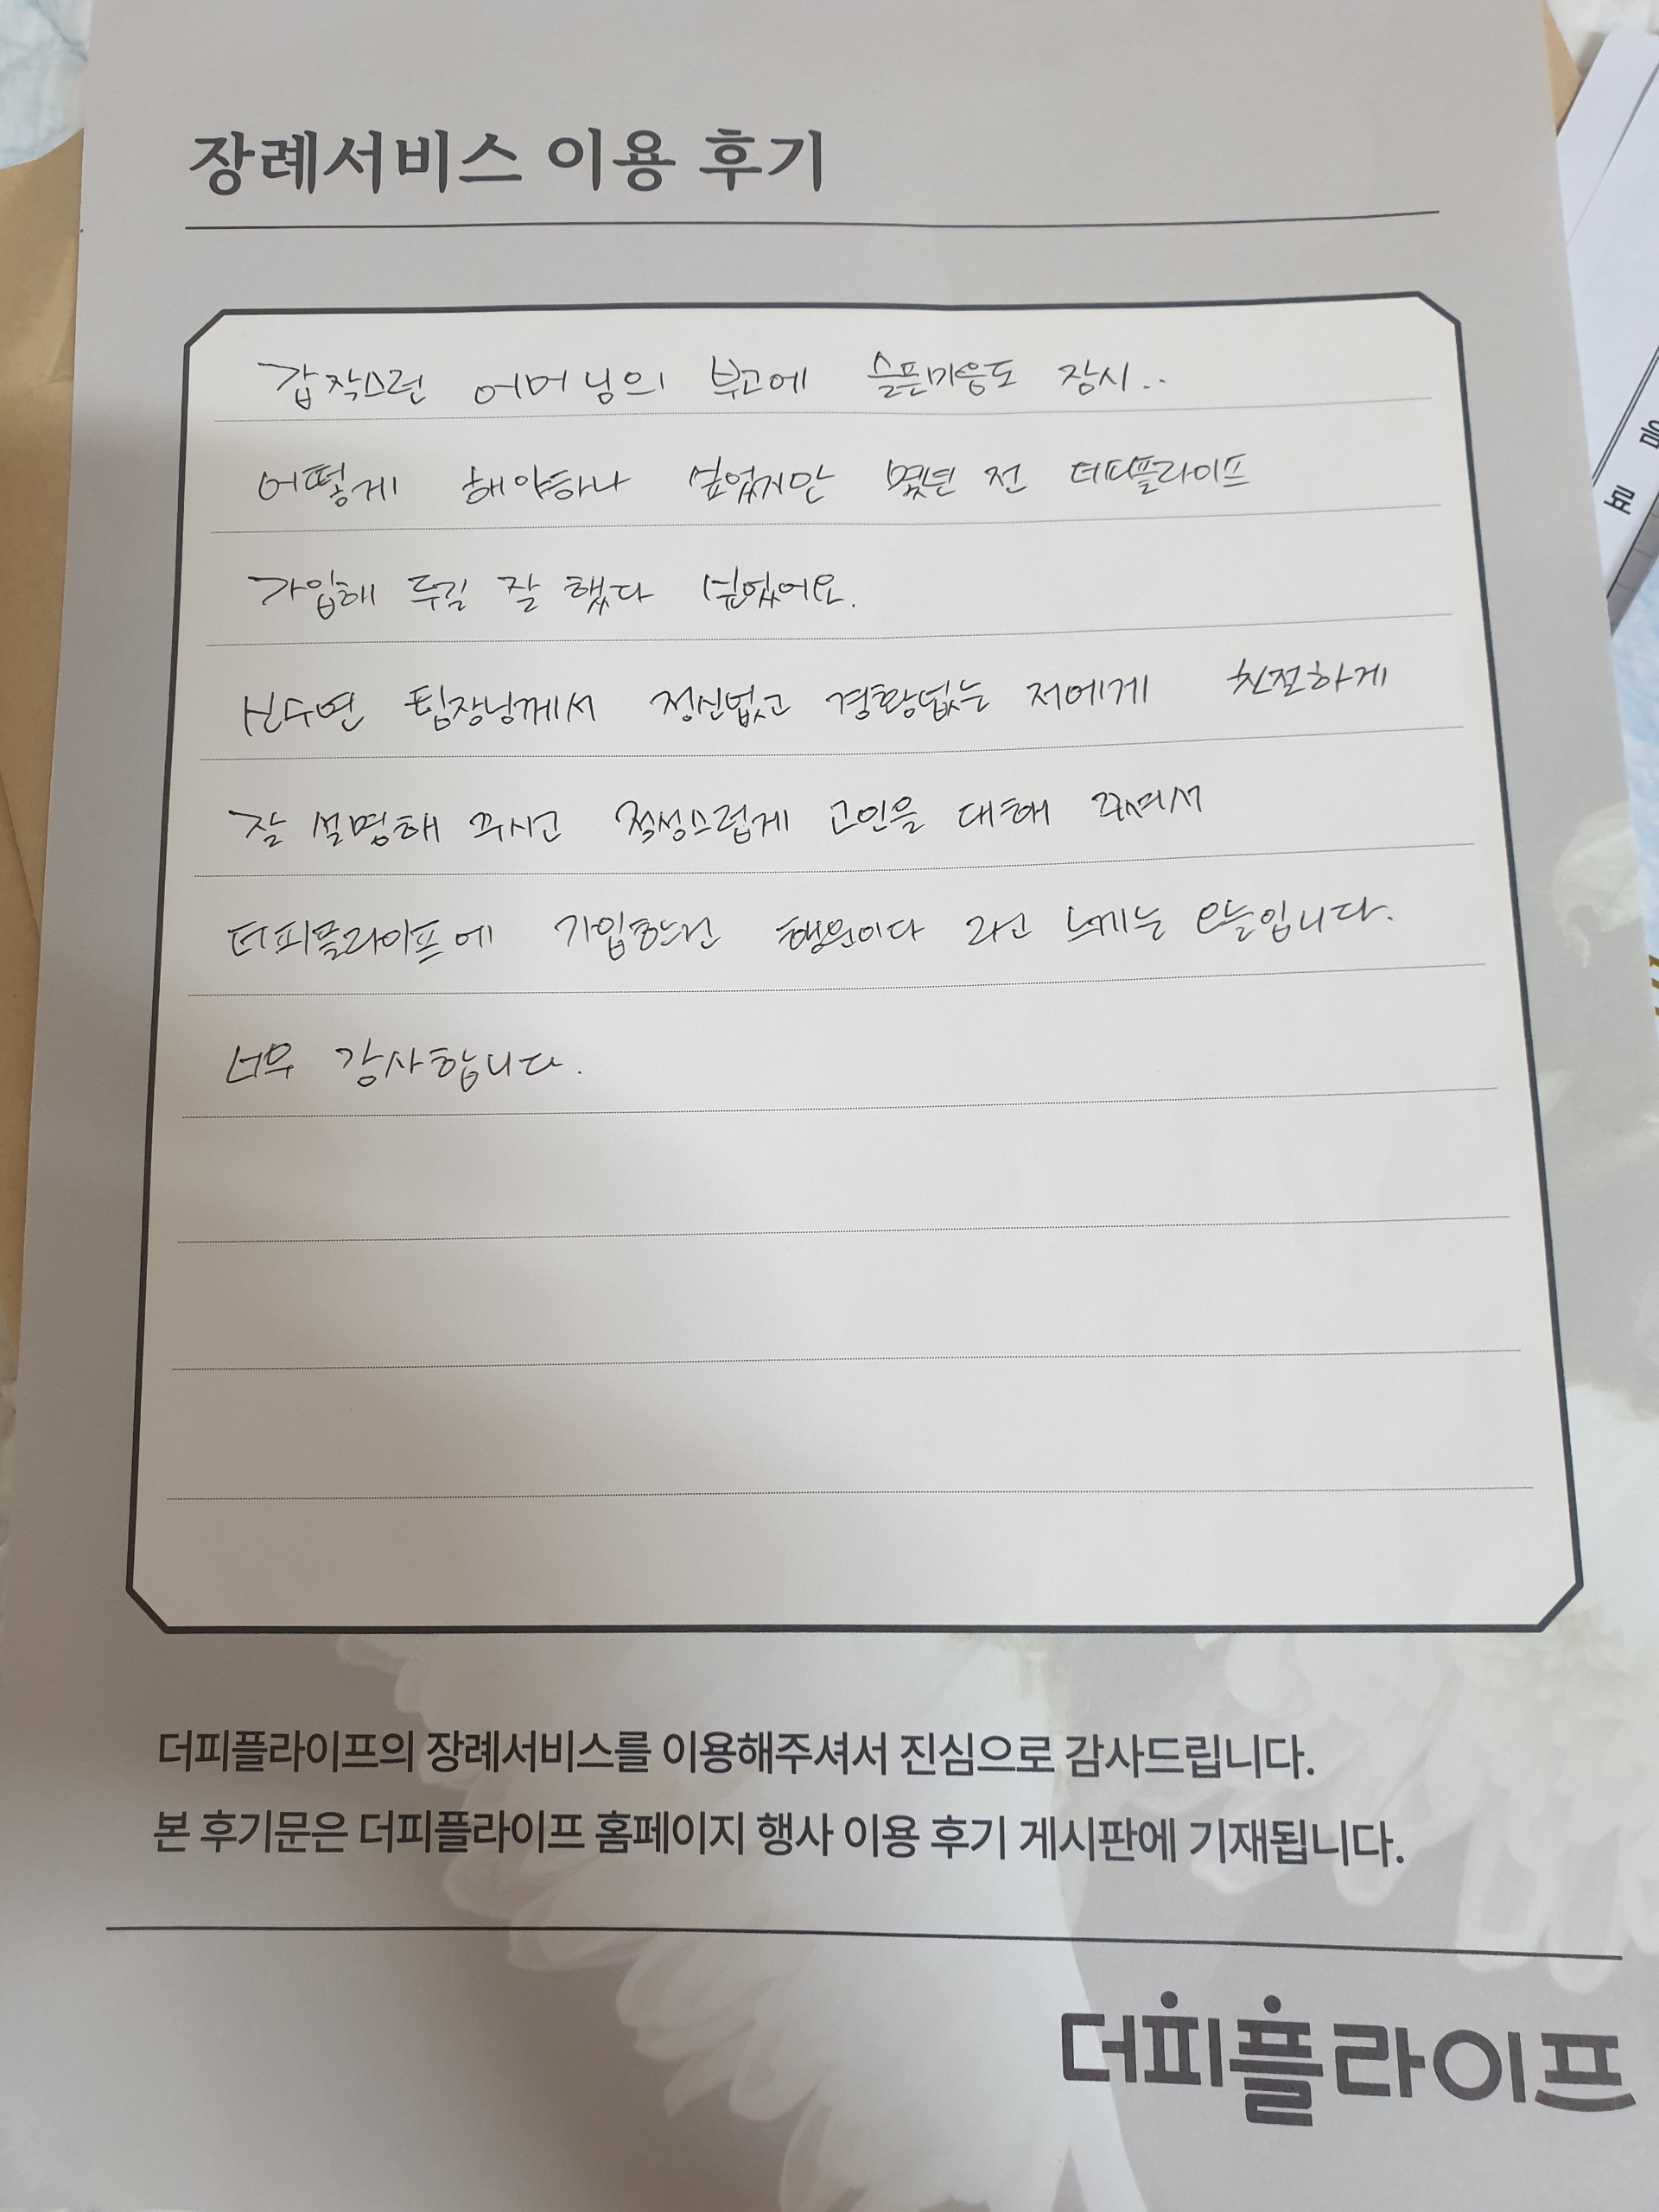 장례서비스 이용 후기
갑작스런 어머님의 부고에 슬픈마음도 잠시..
어떻게 해야하나 싶었지만 몇년 전 더피플라이프
가입해 두길 잘 했다 싶었어요.
신수연 팀장님께서 정신없고 경황없는 저에게 친절하게
잘 설명해 주시고 정성스럽게 고인을 대해 주셔서
더피플라이프에 가입한건 행운이다 라고 느끼는 오늘입니다.
너무 감사합니다.
더피플라이프의 장례서비스를 이용해주셔서 진심으로 감사드립니다.
본 후기문은 더피플라이프 홈페이지 행사 이용 후기 게시판에 기재됩니다.
더피플라이프
음
료